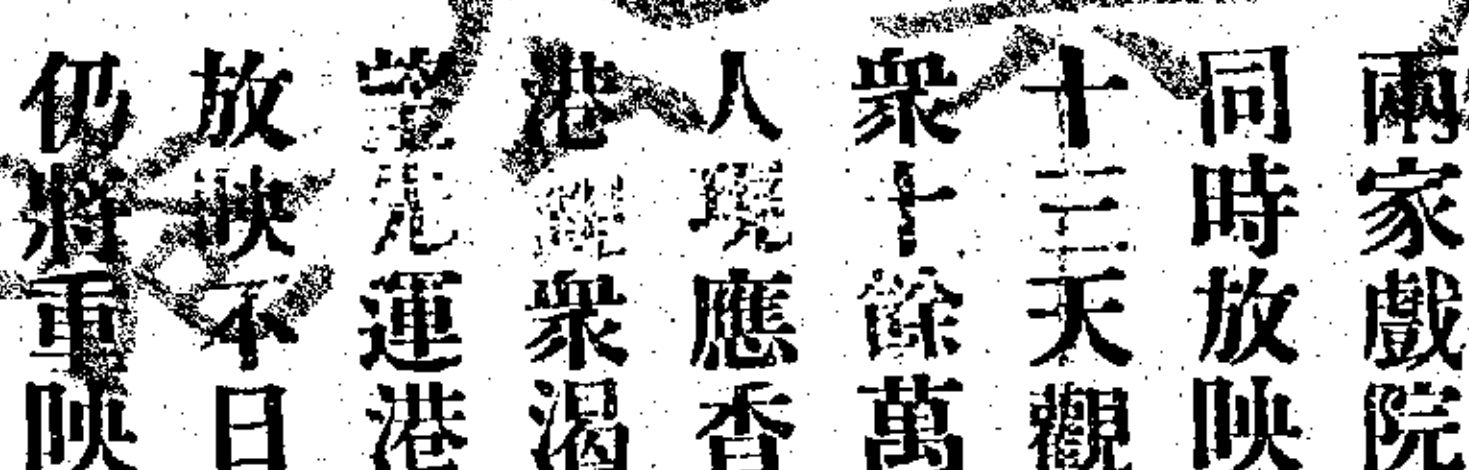 兩家戲院
同時放映
十三天觀
衆十餘萬
人現應香
港觀衆渴
望先運港
放映不日
仍將重映